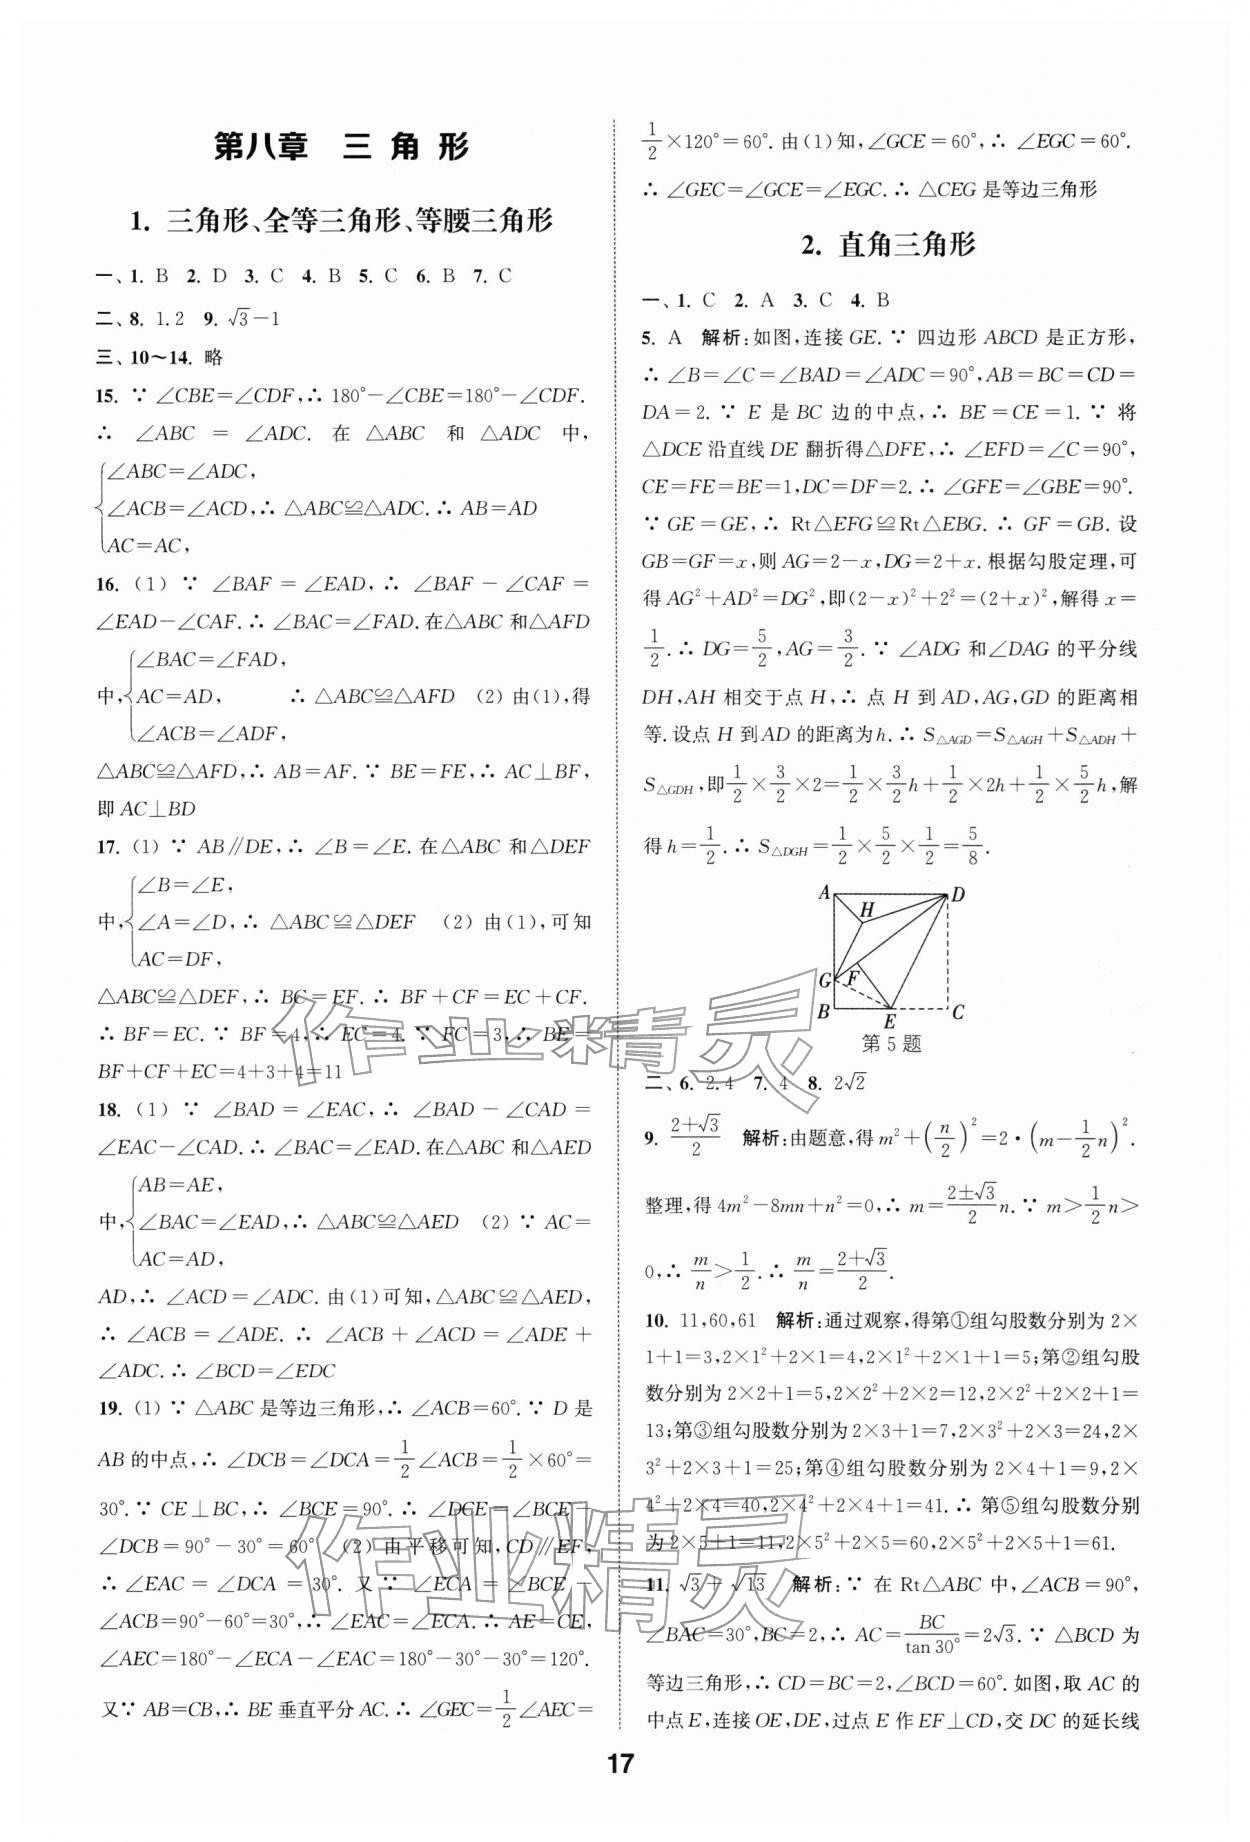 第八章 三角形
1. 三角形、全等三角形、等腰三角形
一、1. B 2. D 3. C 4. B 5. C 6. B 7. C
二、8. 1.2 9. √3−1
三、10～14. 略
15. ∵ ∠CBE=∠CDF,∴ 180°−∠CBE=180°−∠CDF.
∴ ∠ABC = ∠ADC. 在 △ABC 和 △ADC 中,
{∠ABC=∠ADC,
∠ACB=∠ACD,∴ △ABC≌△ADC.∴ AB=AD
AC=AC,
16. (1) ∵ ∠BAF = ∠EAD, ∴ ∠BAF − ∠CAF =
∠EAD−∠CAF.∴ ∠BAC=∠FAD.在△ABC 和△AFD
{∠BAC=∠FAD,
中, AC=AD, ∴ △ABC≌△AFD (2) 由(1),得
∠ACB=∠ADF,
△ABC≌△AFD,∴ AB=AF.∵ BE=FE,∴ AC⊥BF,
即 AC⊥BD
17. (1) ∵ AB∥DE,∴ ∠B=∠E.在△ABC 和△DEF
{∠B=∠E,
中, ∠A=∠D,∴ △ABC≌△DEF (2) 由(1),可知
AC=DF,
△ABC≌△DEF,∴ BC=EF.∴ BF+CF=EC+CF.
∴ BF=EC.∵ BF=4,∴ EC=4.∵ FC=3,∴ BE=
BF+CF+EC=4+3+4=11
18. (1) ∵ ∠BAD = ∠EAC, ∴ ∠BAD − ∠CAD =
∠EAC−∠CAD.∴ ∠BAC=∠EAD.在△ABC 和△AED
{AB=AE,
中, ∠BAC=∠EAD,∴ △ABC≌△AED (2) ∵ AC=
AC=AD,
AD,∴ ∠ACD=∠ADC.由(1)可知,△ABC≌△AED,
∴ ∠ACB = ∠ADE. ∴ ∠ACB + ∠ACD = ∠ADE +
∠ADC.∴ ∠BCD=∠EDC
19. (1) ∵ △ABC 是等边三角形,∴ ∠ACB=60°.∵ D 是
AB 的中点,∴ ∠DCB=∠DCA=1/2∠ACB=1/2×60°=
30°.∵ CE⊥BC,∴ ∠BCE=90°.∴ ∠DCE=∠BCE−
∠DCB=90°−30°=60° (2) 由平移可知,CD∥EF,
∴ ∠EAC = ∠DCA = 30°. 又 ∵ ∠ECA = ∠BCE −
∠ACB=90°−60°=30°,∴ ∠EAC=∠ECA.∴ AE=CE,
∠AEC=180°−∠ECA−∠EAC=180°−30°−30°=120°.
又∵ AB=CB,∴ BE 垂直平分 AC.∴ ∠GEC=1/2∠AEC=
1/2×120°=60°.由(1)知,∠GCE=60°,∴ ∠EGC=60°.
∴ ∠GEC=∠GCE=∠EGC.∴ △CEG 是等边三角形
2. 直角三角形
一、1. C 2. A 3. C 4. B
5. A 解析:如图,连接 GE.∵ 四边形 ABCD 是正方形,
∴ ∠B=∠C=∠BAD=∠ADC=90°,AB=BC=CD=
DA=2.∵ E 是 BC 边的中点,∴ BE=CE=1.∵ 将
△DCE 沿直线 DE 翻折得△DFE,∴ ∠EFD=∠C=90°,
CE=FE=BE=1,DC=DF=2.∴ ∠GFE=∠GBE=90°.
∵ GE=GE,∴ Rt△EFG≌Rt△EBG.∴ GF=GB.设
GB=GF=x,则 AG=2−x,DG=2+x.根据勾股定理,可
得 AG²+AD²=DG²,即(2−x)²+2²=(2+x)²,解得 x=
1/2.∴ DG=5/2,AG=3/2.∵ ∠ADG 和∠DAG 的平分线
DH,AH 相交于点 H,∴ 点 H 到 AD,AG,GD 的距离相
等.设点 H 到 AD 的距离为 h.∴ S△AGD=S△AGH+S△ADH+
S△GDH,即1/2×3/2×2=1/2×3/2h+1/2×2h+1/2×5/2h,解
得 h=1/2.∴ S△DGH=1/2×5/2×1/2=5/8.
A D
H
G F
B E C
第 5 题
二、6. 2.4 7. 4 8. 2√2
9. (2+√3)/2 解析:由题意,得 m²+(n/2)²=2·(m−1/2n)².
整理,得 4m²−8mn+n²=0,∴ m=(2±√3)/2 n.∵ m>1/2n>
0,∴ m/n>1/2.∴ m/n=(2+√3)/2.
10. 11,60,61 解析:通过观察,得第①组勾股数分别为 2×
1+1=3,2×1²+2×1=4,2×1²+2×1+1=5;第②组勾股
数分别为 2×2+1=5,2×2²+2×2=12,2×2²+2×2+1=
13;第③组勾股数分别为 2×3+1=7,2×3²+2×3=24,2×
3²+2×3+1=25;第④组勾股数分别为 2×4+1=9,2×
4²+2×4=40,2×4²+2×4+1=41.∴ 第⑤组勾股数分别
为 2×5+1=11,2×5²+2×5=60,2×5²+2×5+1=61.
11. √3+√13 解析:∵ 在 Rt△ABC 中,∠ACB=90°,
∠BAC=30°,BC=2,∴ AC=BC/tan30°=2√3.∵ △BCD 为
等边三角形,∴ CD=BC=2,∠BCD=60°.如图,取 AC 的
中点 E,连接 OE,DE,过点 E 作 EF⊥CD,交 DC 的延长线
17
作业精灵
作业精灵